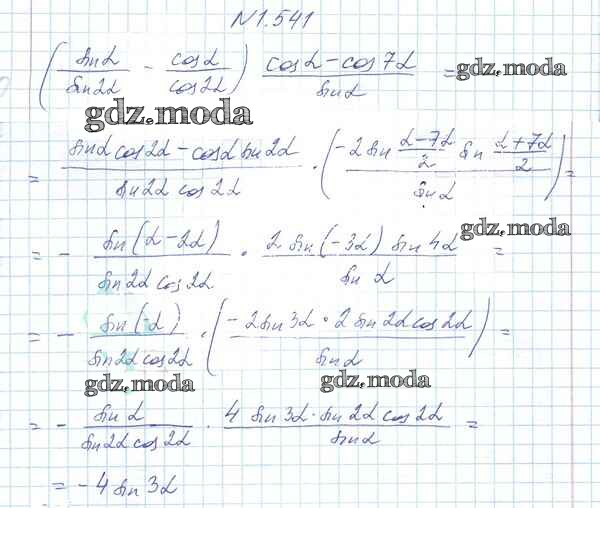 N1.541
(sinα/sin2α − cosα/cos2α) (cosα − cos7α)/sinα = gdz.moda
gdz.moda
= (sinα cos2α − cosα sin2α)/(sin2α cos2α) · (−2 sin (α−7α)/2 sin (α+7α)/2)/sinα =
gdz.moda
= − sin(α−2α)/(sin2α cos2α) · (2 sin(−3α) sin4α)/sin α =
= − sin(−α)/(sin2α cos2α) · (−2 sin3α · 2 sin2α cos2α)/sinα =
gdz.moda gdz.moda
= − sin α/(sin2α cos2α) · (4 sin3α · sin2α cos2α)/sinα =
= −4 sin 3α